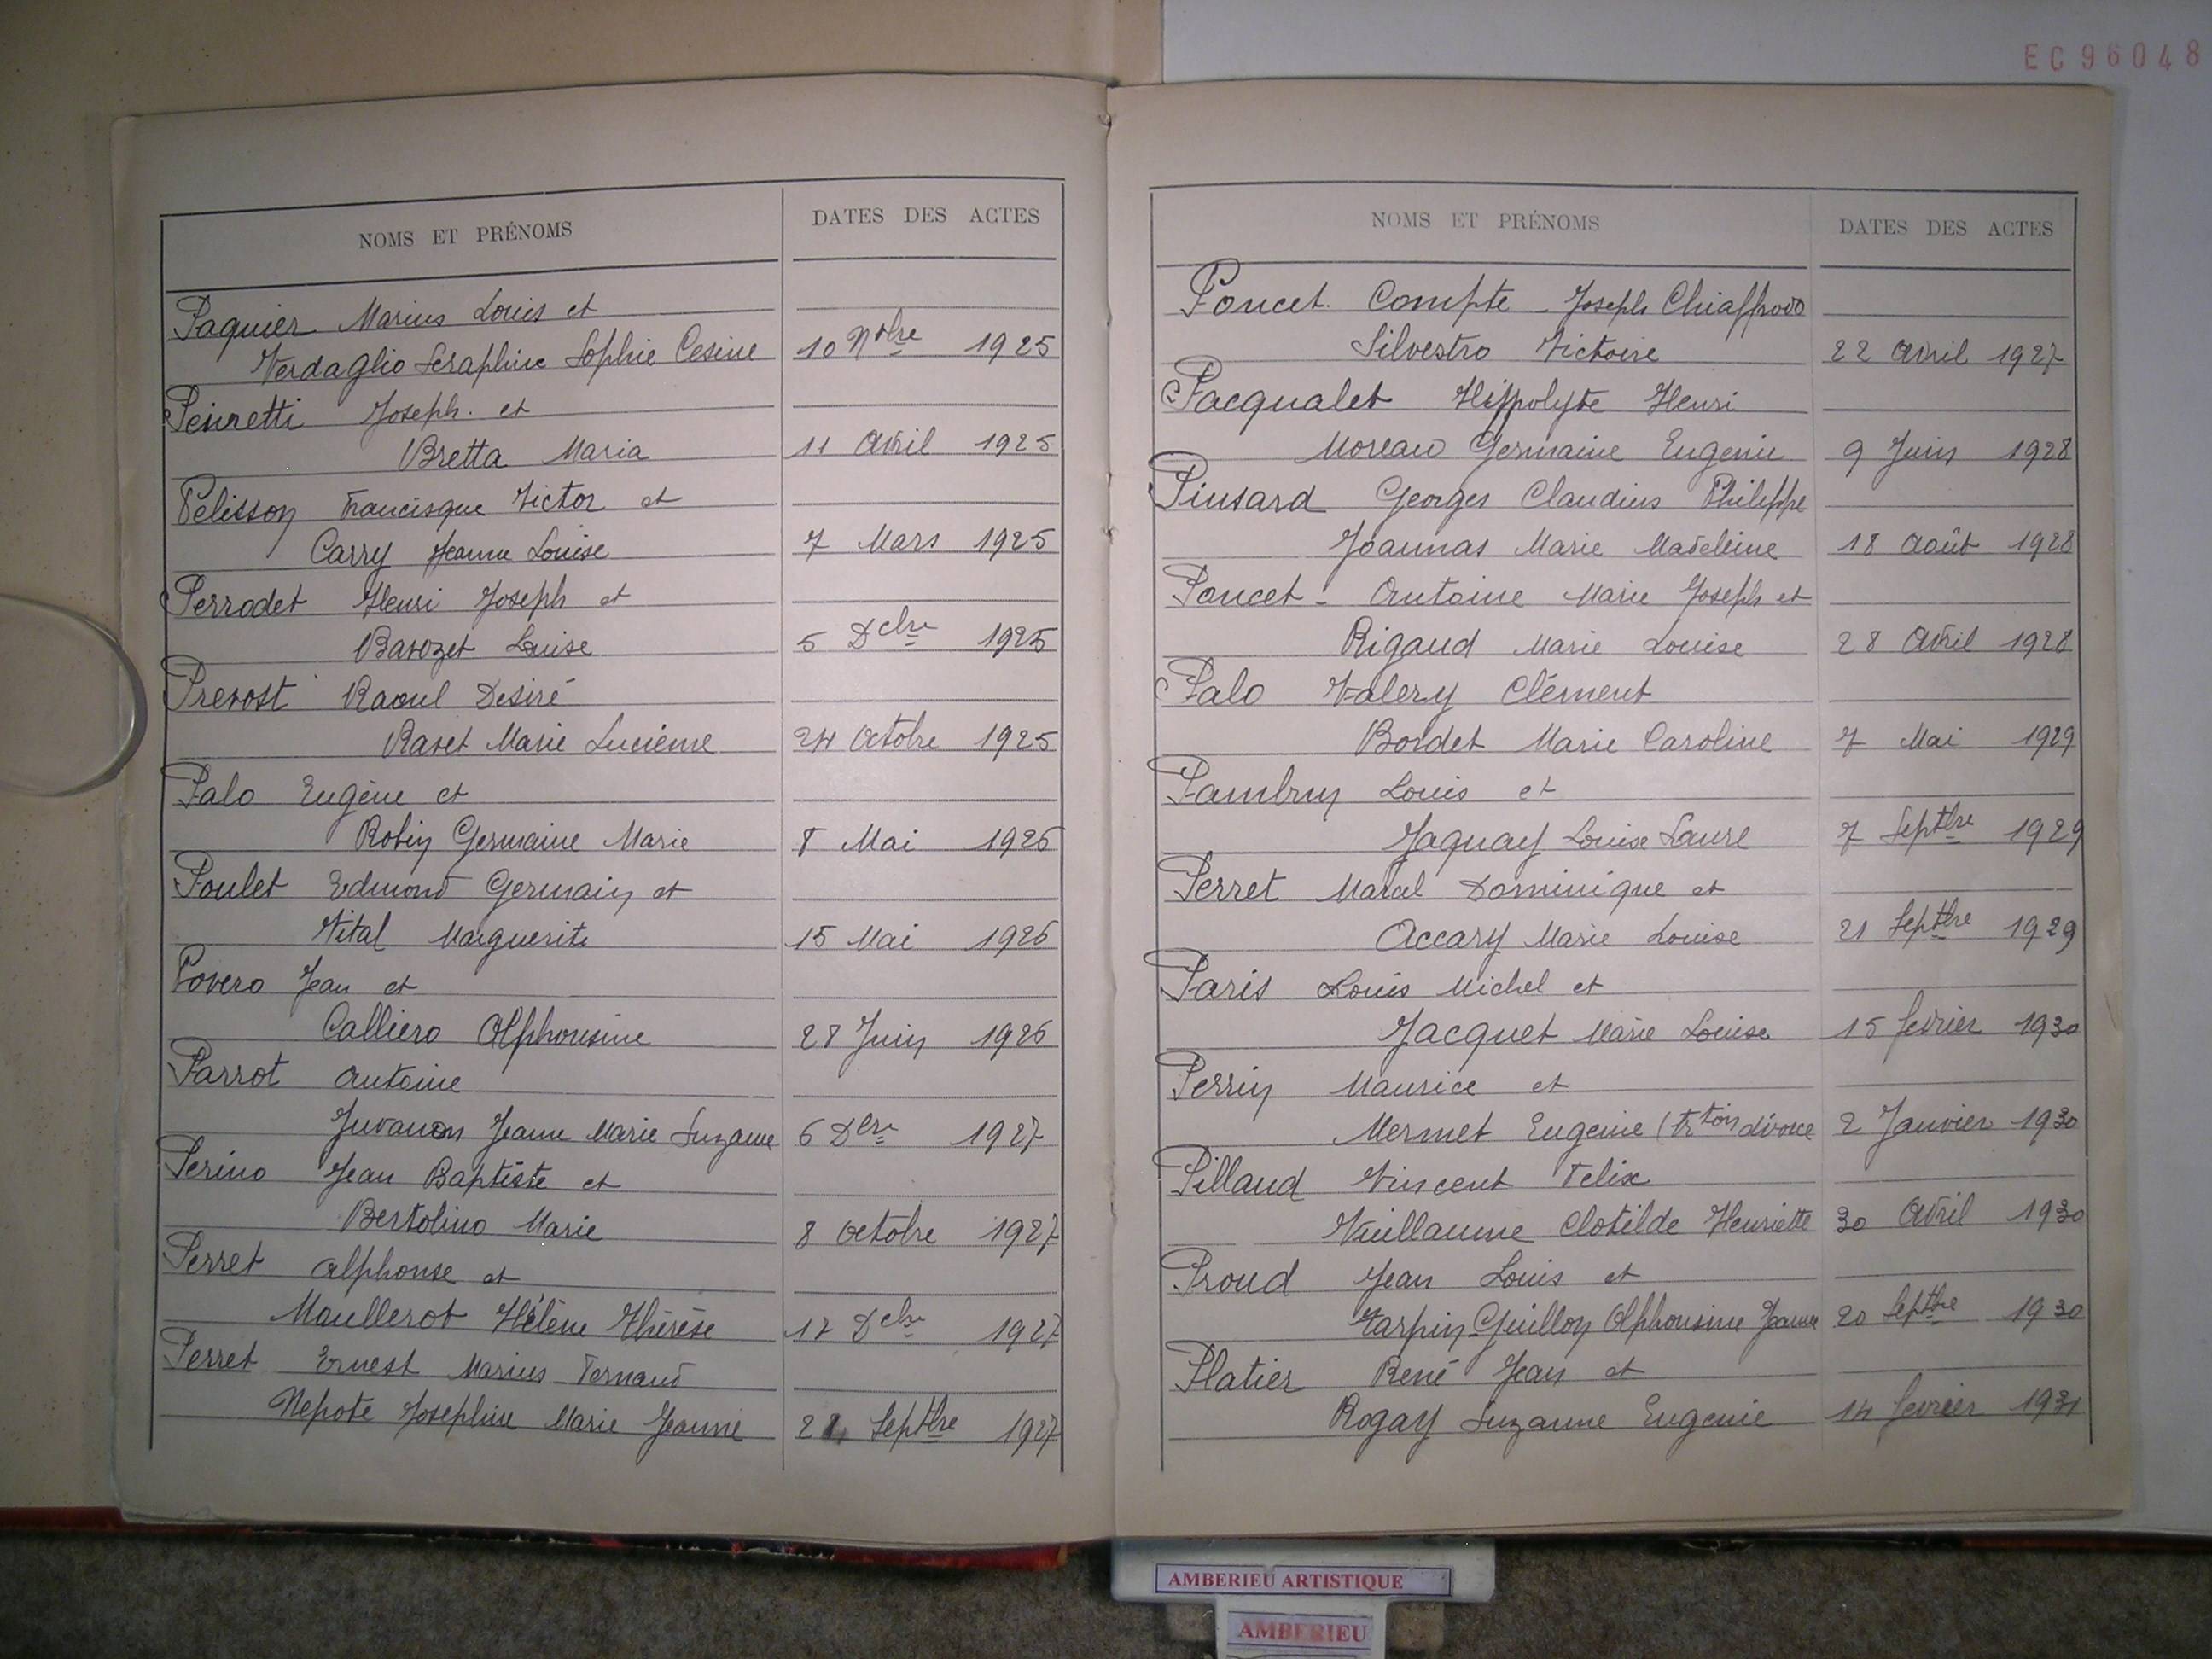 EC96048
NOMS ET PRÉNOMS DATES DES ACTES
Paquier Marius Louis et
Verdaglio Seraphine Sophie Cesine 10 Nbre 1925
Peiretti Joseph. et
Bretta Maria 11 Avril 1925
Pelisson Francisque Victor et
Carry Jeanne Louise 7 Mars 1925
Perrodet Henri Joseph et
Barozet Louise 5 Dcbre 1925
Prevost Raoul Desiré
Ravet Marie Lucienne 24 Octobre 1925
Palo Eugène et
Robin Germaine Marie 8 Mai 1926
Poulet Edmond Germain et
Vital Marguerite 15 Mai 1926
Povero Jean et
Calliero Alphonsine 28 Juin 1926
Parrot Antoine
Juvanon Jeanne Marie Suzanne 6 Dbre 1927
Perino Jean Baptiste et
Bertolino Marie 8 Octobre 1927
Perret Alphonse et
Maullerot Hélène Thérèse 17 Dcbre 1927
Perret Ernest Marius Fernand
Nepote Josephine Marie Jeanne Septbre 1927
NOMS ET PRÉNOMS DATES DES ACTES
Poncet Compte Joseph Chiaffrodo
Silvestro Victoire 22 Avril 1927
Pacqualet Hippolyte Henri
Moreau Germaine Eugenie 9 Juin 1928
Pinsard Georges Claudius Philippe
Joannas Marie Madeleine 18 Août 1928
Poncet - Antoine Marie Joseph et
Rigaud Marie Louise 28 Avril 1928
Palo Valery Clément
Bordet Marie Caroline 7 Mai 1929
Pambrun Louis et
Jaquay Louise Laure 7 Septbre 1929
Perret Marcel Dominique et
Accary Marie Louise 21 Septbre 1929
Paris Louis Michel et
Jacquet Marie Louise 15 fevrier 1930
Perrin Maurice et
Mermet Eugenie (trton divorce 2 Janvier 1930
Pillaud Vincent Felix
Vuillaume Clotilde Henriette 30 Avril 1930
Proud Jean Louis et
Tarpin-Guillon Alphonsine Jeanne 20 Septbre 1930
Platier René Jean et
Rogay Suzanne Eugenie 14 fevrier 1931
AMBERIEU ARTISTIQUE
AMBERIEU